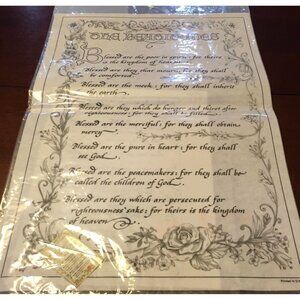 The Beatitudes
Blessed are the poor in spirit: for theirs
is the kingdom of heaven.
Blessed are they that mourn: for they shall
be comforted.
Blessed are the meek: for they shall inherit
the earth.
Blessed are they which do hunger and thirst after
righteousness: for they shall be filled.
Blessed are the merciful: for they shall obtain
mercy.
Blessed are the pure in heart: for they shall
see God.
Blessed are the peacemakers: for they shall be
called the children of God.
Blessed are they which are persecuted for
righteousness' sake: for theirs is the kingdom
of heaven.
Printed in